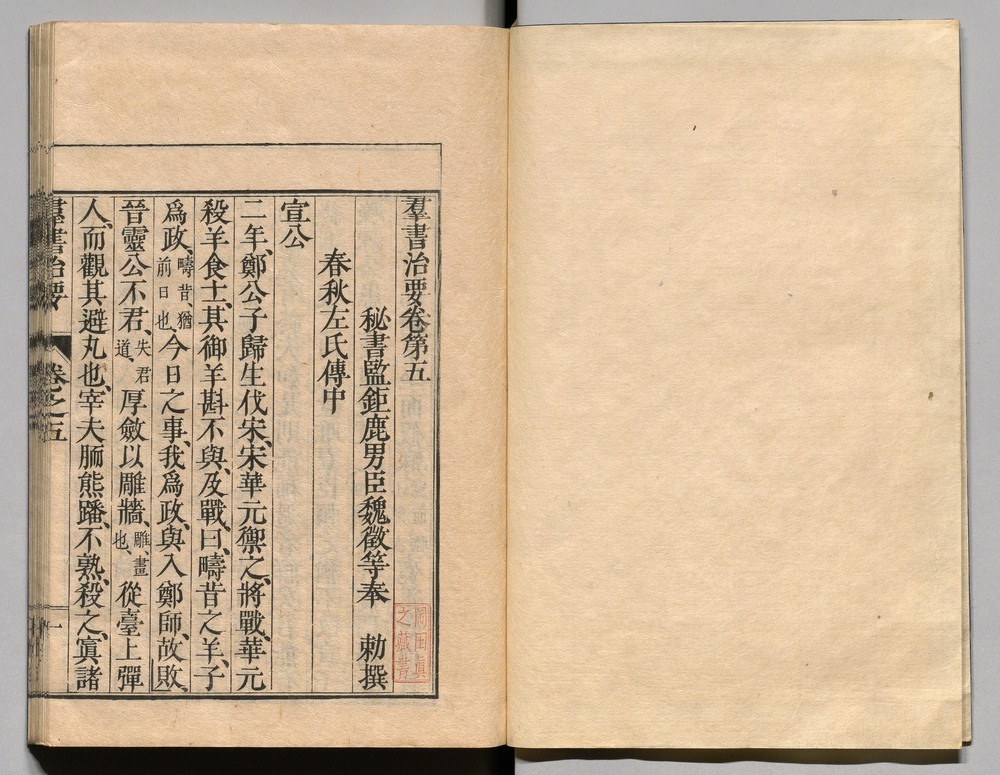 羣書治要卷第五
秘書監鉅鹿男臣魏徵等奉　勅撰
春秋左氏傳中
宣公
二年、鄭公子歸生伐宋、宋華元禦之、將戰、華元
殺羊食士、其御羊斟不與、及戰、曰、疇昔之羊、子
爲政、疇昔、猶前日也、今日之事、我爲政、與入鄭師、故敗、
晉靈公不君、失君道、厚斂以雕牆、雕、畫也、從臺上彈
人、而觀其避丸也、宰夫胹熊蹯、不熟、殺之、寘諸
羣書治要　卷之五　一
岡田眞
之藏書